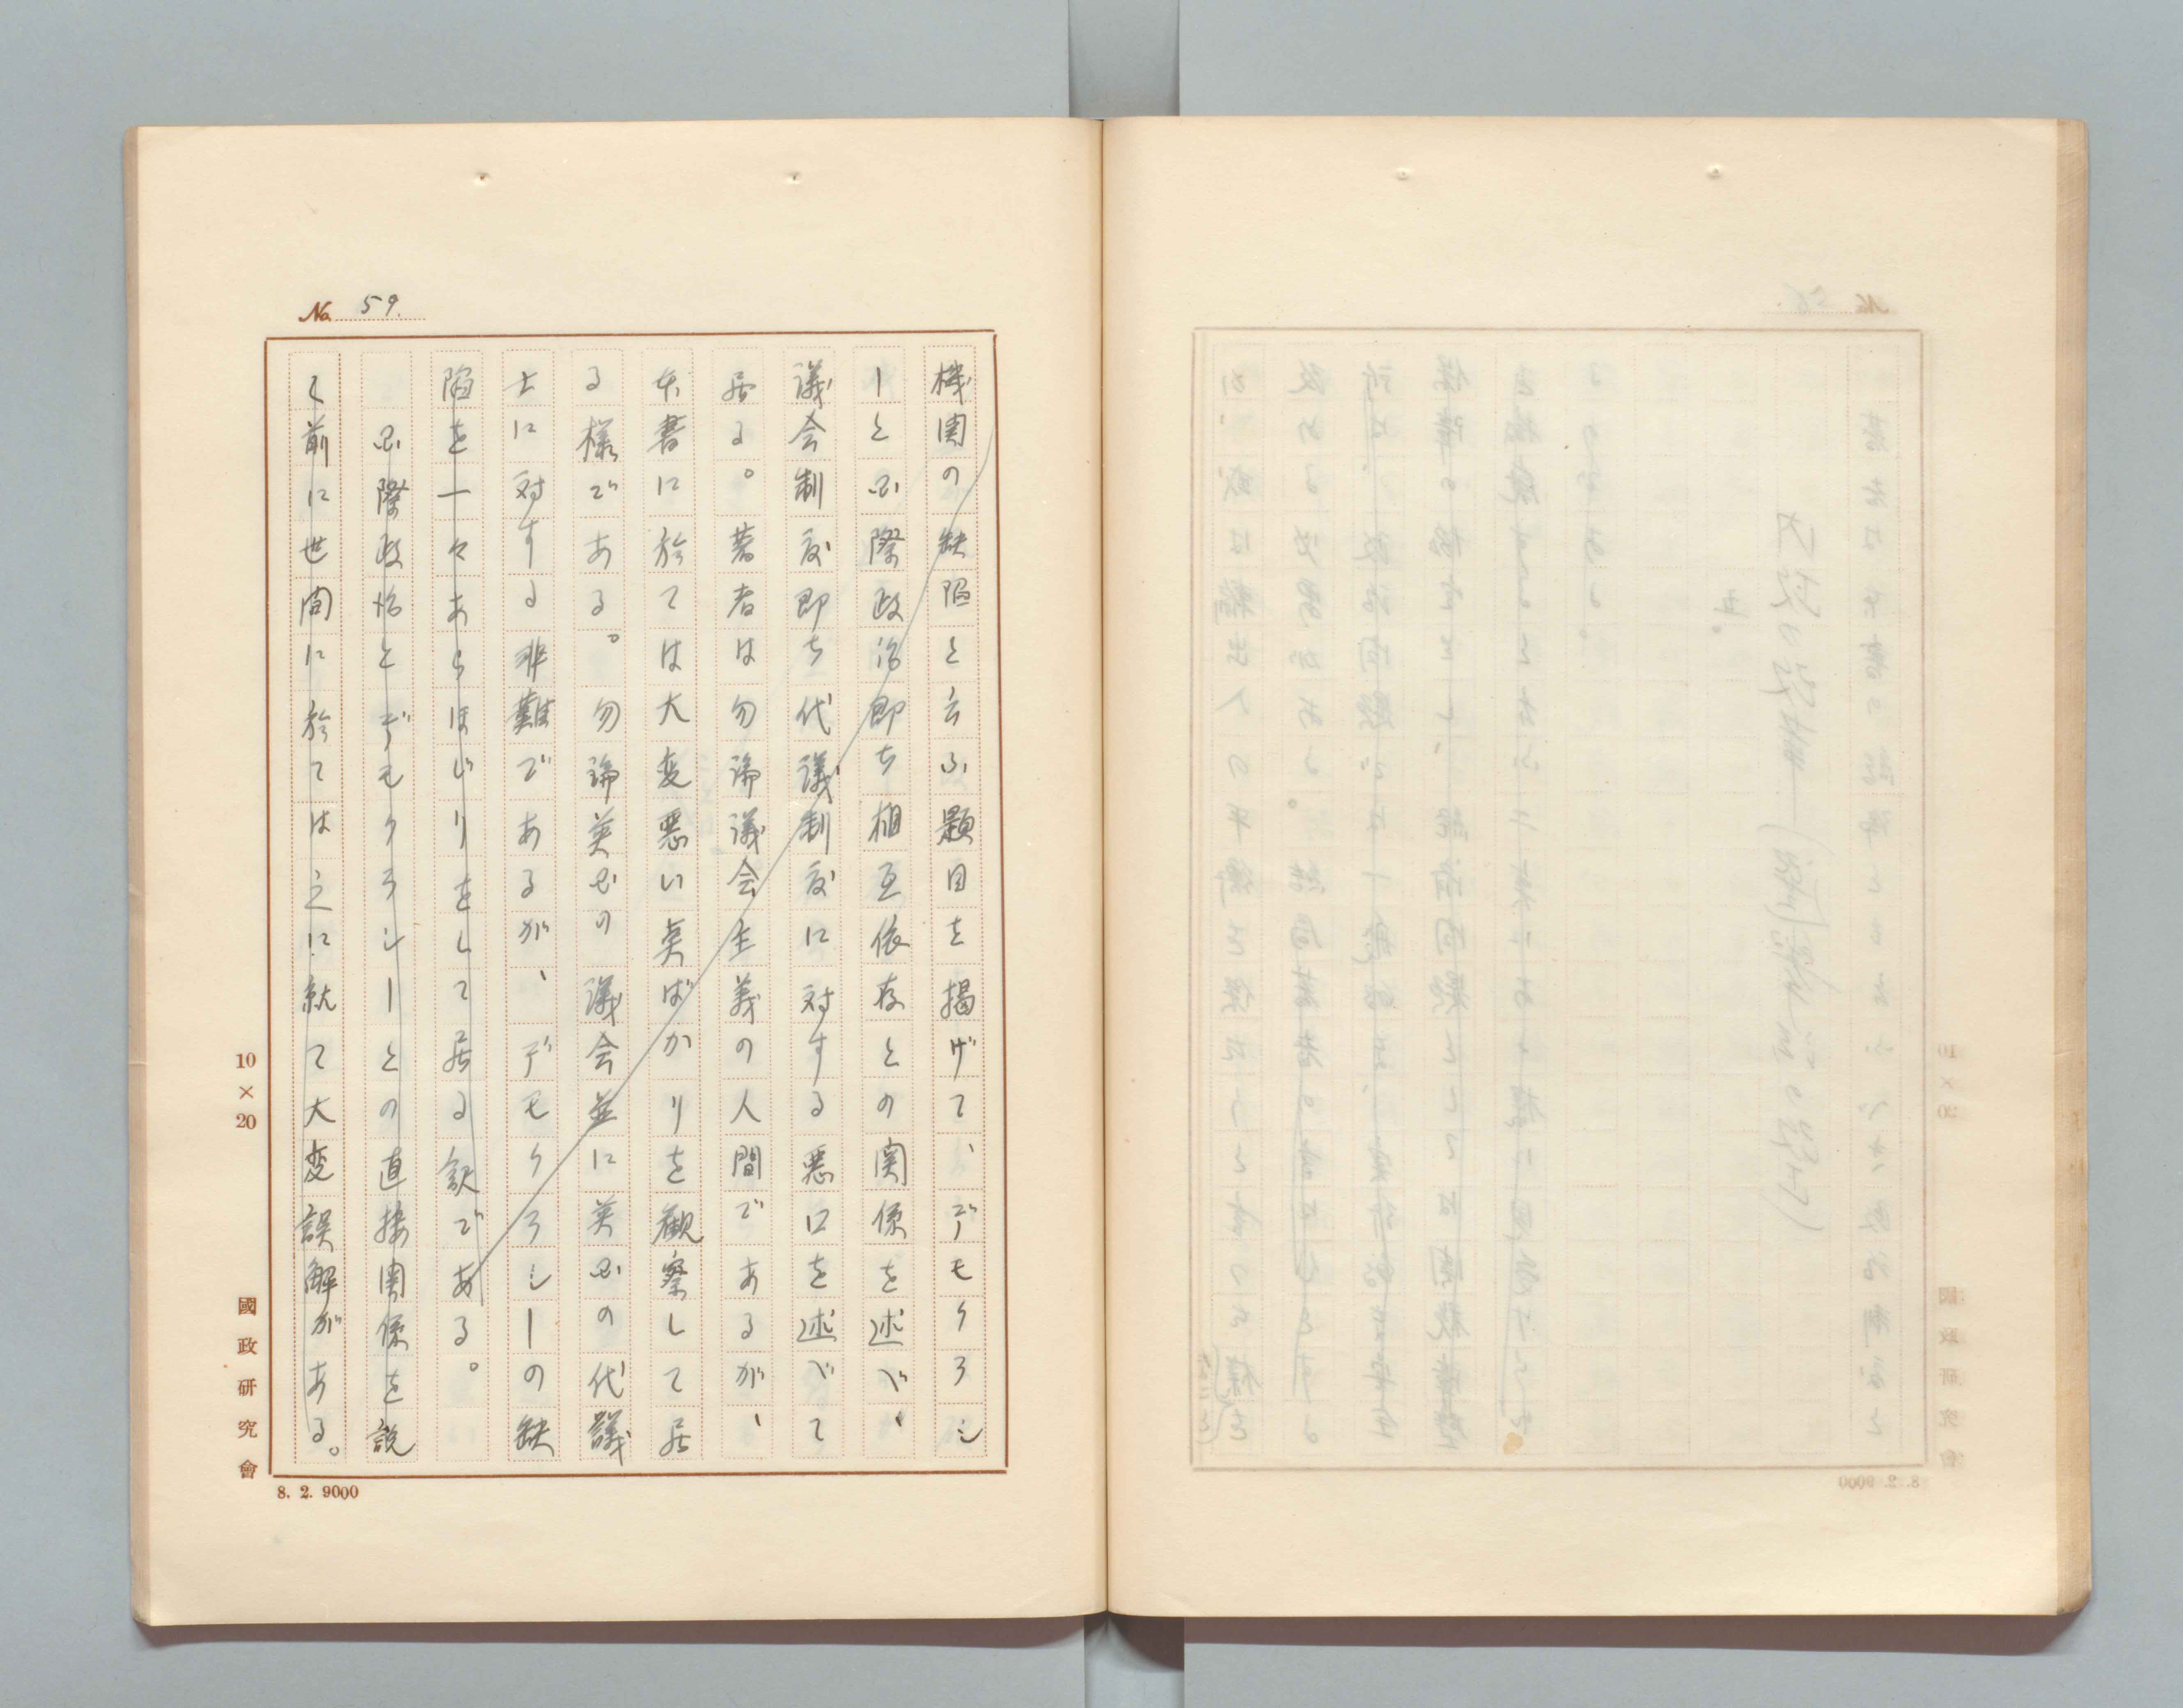 No. 59.
機関の缺陥と云ふ題目を掲げて、デモクラシ
ーと国際政治即ち相互依存との関係を述べ、
議会制度即ち代議制度に対する悪口を述べて
居る。著者は勿論議会主義の人間であるが、
本書に於ては大変悪い点ばかりを観察して居
る様である。勿論英国の議会並に英国の代議
士に対する非難であるが、デモクラシーの缺
陥を一々あらはじりをして居る訳である。
国際政治とデモクラシーとの直接関係を説
く前に世間に於ては之に就て大変誤解がある。
10×20
國政研究會
8. 2. 9000